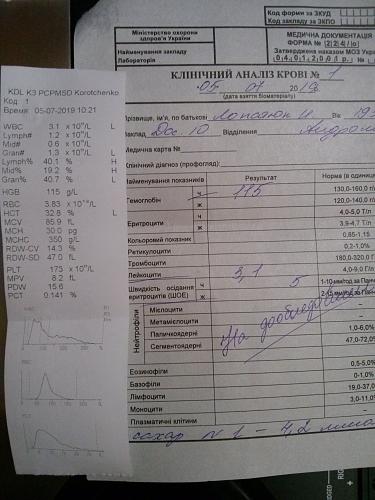 KDL K3 PCPM5D Korotchenko
Код: 1
Время: 05-07-2019 10:21
WBC 3.1 x 10⁹/L L
Lymph# 1.2 x 10⁹/L
Mid# 0.6 x 10⁹/L
Gran# 1.3 x 10⁹/L L
Lymph% 40.1 % H
Mid% 19.2 % H
Gran% 40.7 % L
HGB 115 g/L
RBC 3.83 x 10¹²/L
HCT 32.8 % L
MCV 85.9 fL
MCH 30.0 pg
MCHC 350 g/L
RDW-CV 14.3 %
RDW-SD 47.0 fL
PLT 173 x 10⁹/L
MPV 8.2 fL
PDW 15.6
PCT 0.141 %
WBC
RBC
PLT
Код форми за ЗКУД
Код закладу за ЗКПО
Міністерство охорони
здоров'я України
Найменування закладу
Лабораторія
МЕДИЧНА ДОКУМЕНТАЦІЯ
ФОРМА № 224/о
Затверджена наказом МОЗ України
04.01.2001 р. №
КЛІНІЧНИЙ АНАЛІЗ КРОВІ № 1
05 07 2019
(дата взяття біоматеріалу)
Прізвище, ім'я, по батькові
Відділення
Медична карта №
Клінічний діагноз (профогляд):
Найменування показників Результат Норма (в одиниц
Гемоглобін ч 115 130,0-160,0 г/л
ж 120,0-140,0 г/л
Еритроцити ч 4,0-5,0 Т/л
ж 3,9-4,7 Т/л
Кольоровий показник 0,85-1,15
Ретикулоцити 0,2-1,0%
Тромбоцити 180,0-320,0 Г
Лейкоцити 3,1 4,0-9,0 Г/л
Швидкість осідання
еритроцитів (ШОЕ) ч 5 1-10 мм/год за Пан
ж 2-15 мм/год за Пан
Нейтрофіли
Мієлоцити
Метамієлоцити
Паличкоядерні 1,0-6,0%
Сегментоядерні 47,0-72,0
Еозинофіли 0,5-5,0%
Базофіли 0-1,0%
Лімфоцити 19,0-37,0
Моноцити 3,0-11,0
Плазматичні клітини
сахар N 1 – 4,2